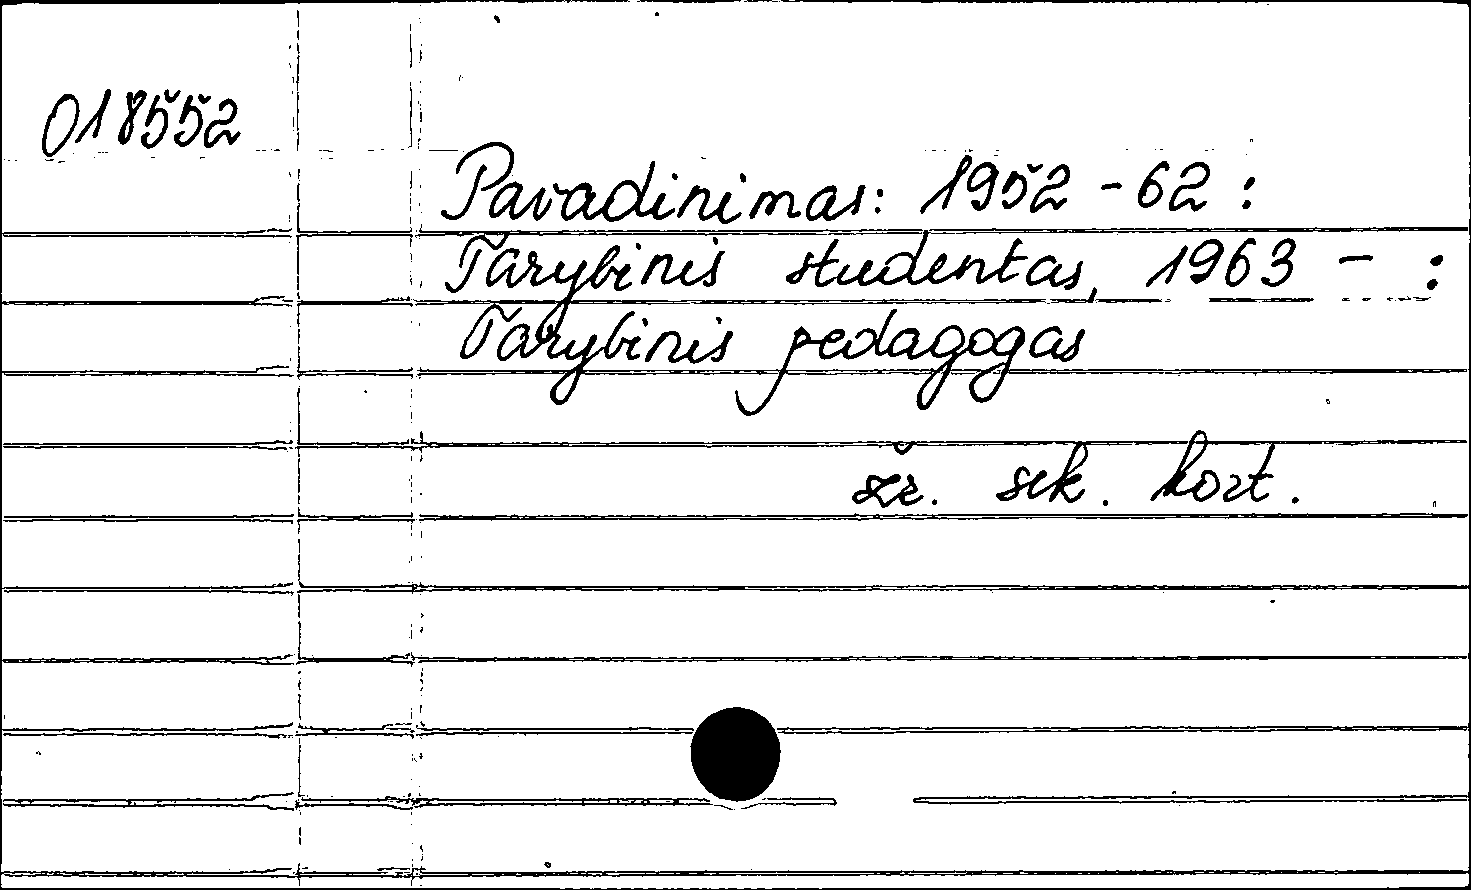 018552
Pavadinimas: 1952 - 62 :
Tarybinis studentas, 1963 - :
Tarybinis pedagogas
žr. sek. kort.